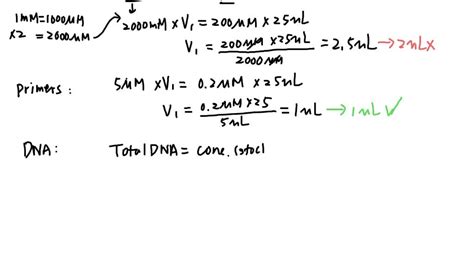 1mM=1000μM
x2 = 2000μM
2000mM x V₁ = 200μM x 25μL
V₁ = 200μM x 25μL / 2000μM = 2.5μL → 2μL x
Primers: 5μM x V₁ = 0.2μM x 25μL
V₁ = 0.2μM x 25 / 5μL = 1μL → 1μL ✓
DNA: Total DNA = conc. (stocl